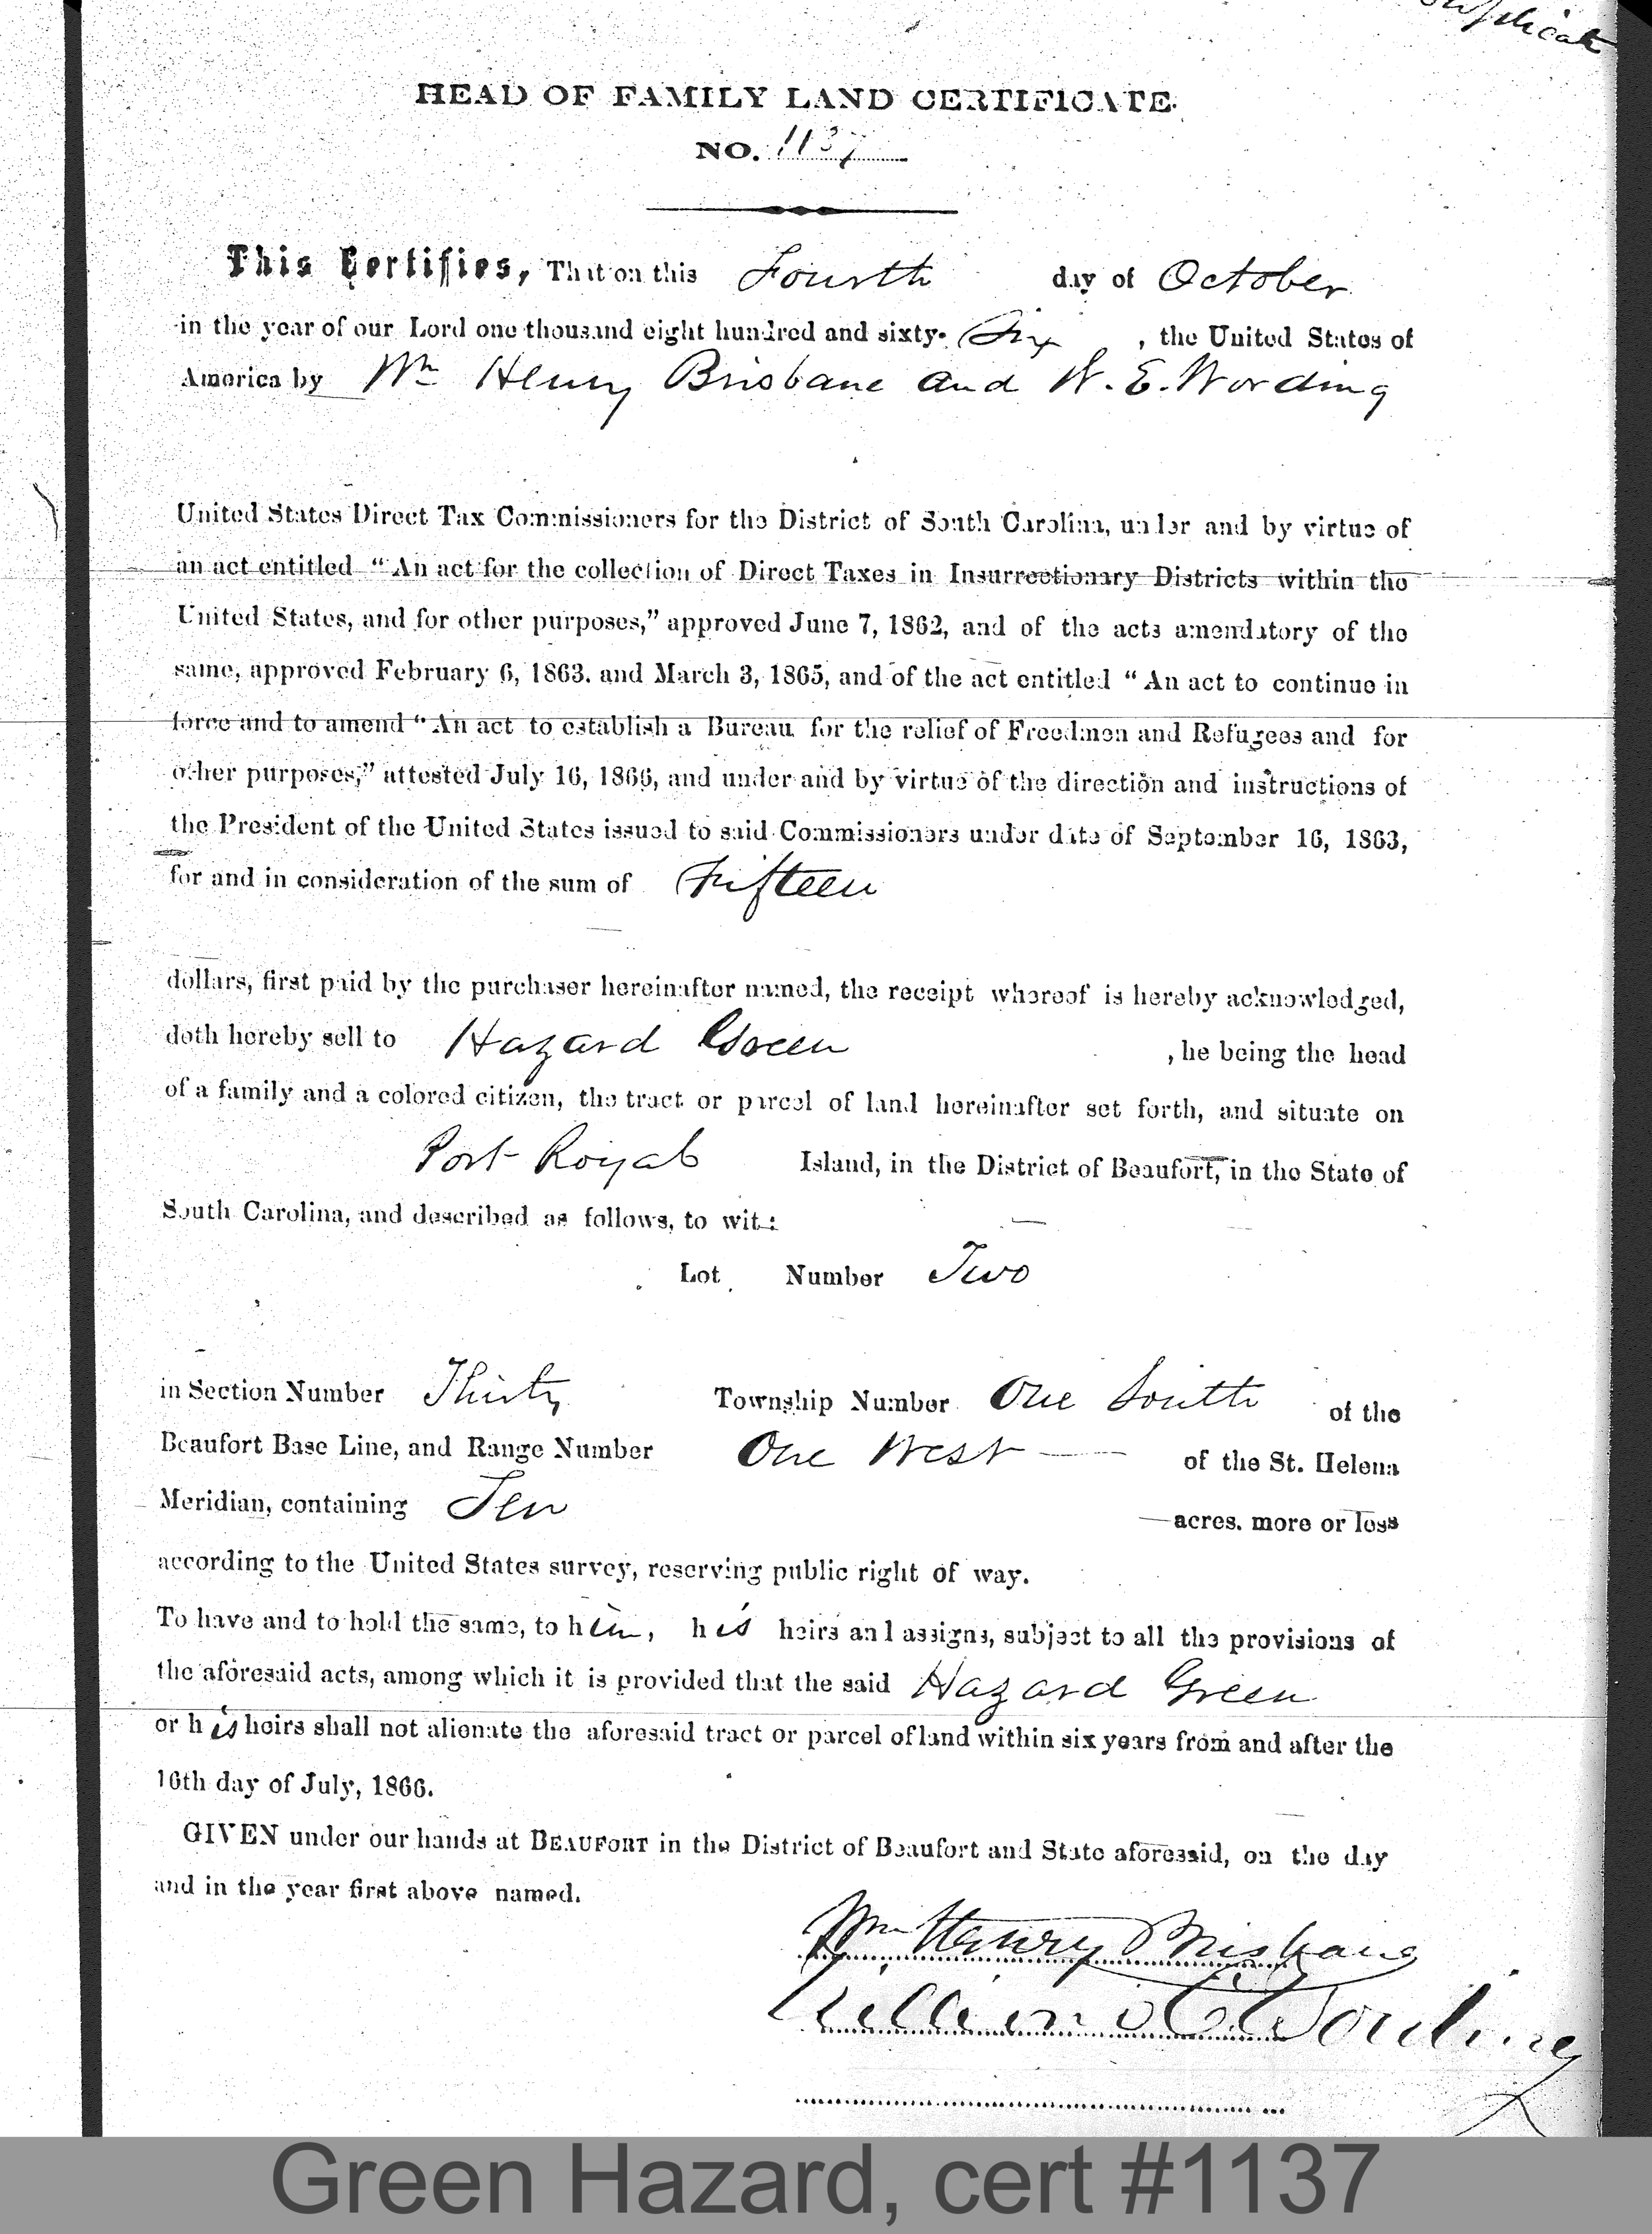 Duplicate
HEAD OF FAMILY LAND CERTIFICATE.
NO. 1137
This Certifies, That on this Fourth day of October
in the year of our Lord one thousand eight hundred and sixty-Six, the United States of
America by Wm Henry Brisbane and W. E. Wording
United States Direct Tax Commissioners for the District of South Carolina, under and by virtue of
an act entitled “An act for the collection of Direct Taxes in Insurrectionary Districts within the
United States, and for other purposes,” approved June 7, 1862, and of the acts amendatory of the
same, approved February 6, 1863. and March 3, 1865, and of the act entitled “An act to continue in
force and to amend “An act to establish a Bureau for the relief of Freedmen and Refugees and for
other purposes,” attested July 16, 1866, and under and by virtue of the direction and instructions of
the President of the United States issued to said Commissioners under date of September 16, 1863,
for and in consideration of the sum of Fifteen
dollars, first paid by the purchaser hereinafter named, the receipt whereof is hereby acknowledged,
doth hereby sell to Hazard Green , he being the head
of a family and a colored citizen, the tract or parcel of land hereinafter set forth, and situate on
Port Royal Island, in the District of Beaufort, in the State of
South Carolina, and described as follows, to wit:
Lot Number Two
in Section Number Thirty Township Number One South of the
Beaufort Base Line, and Range Number One West — of the St. Helena
Meridian, containing Ten —acres. more or less
according to the United States survey, reserving public right of way.
To have and to hold the same, to him, his heirs and assigns, subject to all the provisions of
the aforesaid acts, among which it is provided that the said Hazard Green
or his heirs shall not alienate the aforesaid tract or parcel of land within six years from and after the
16th day of July, 1866.
GIVEN under our hands at BEAUFORT in the District of Beaufort and State aforesaid, on the day
and in the year first above named.
Wm Henry Brisbane
William E. Wording
Green Hazard, cert #1137